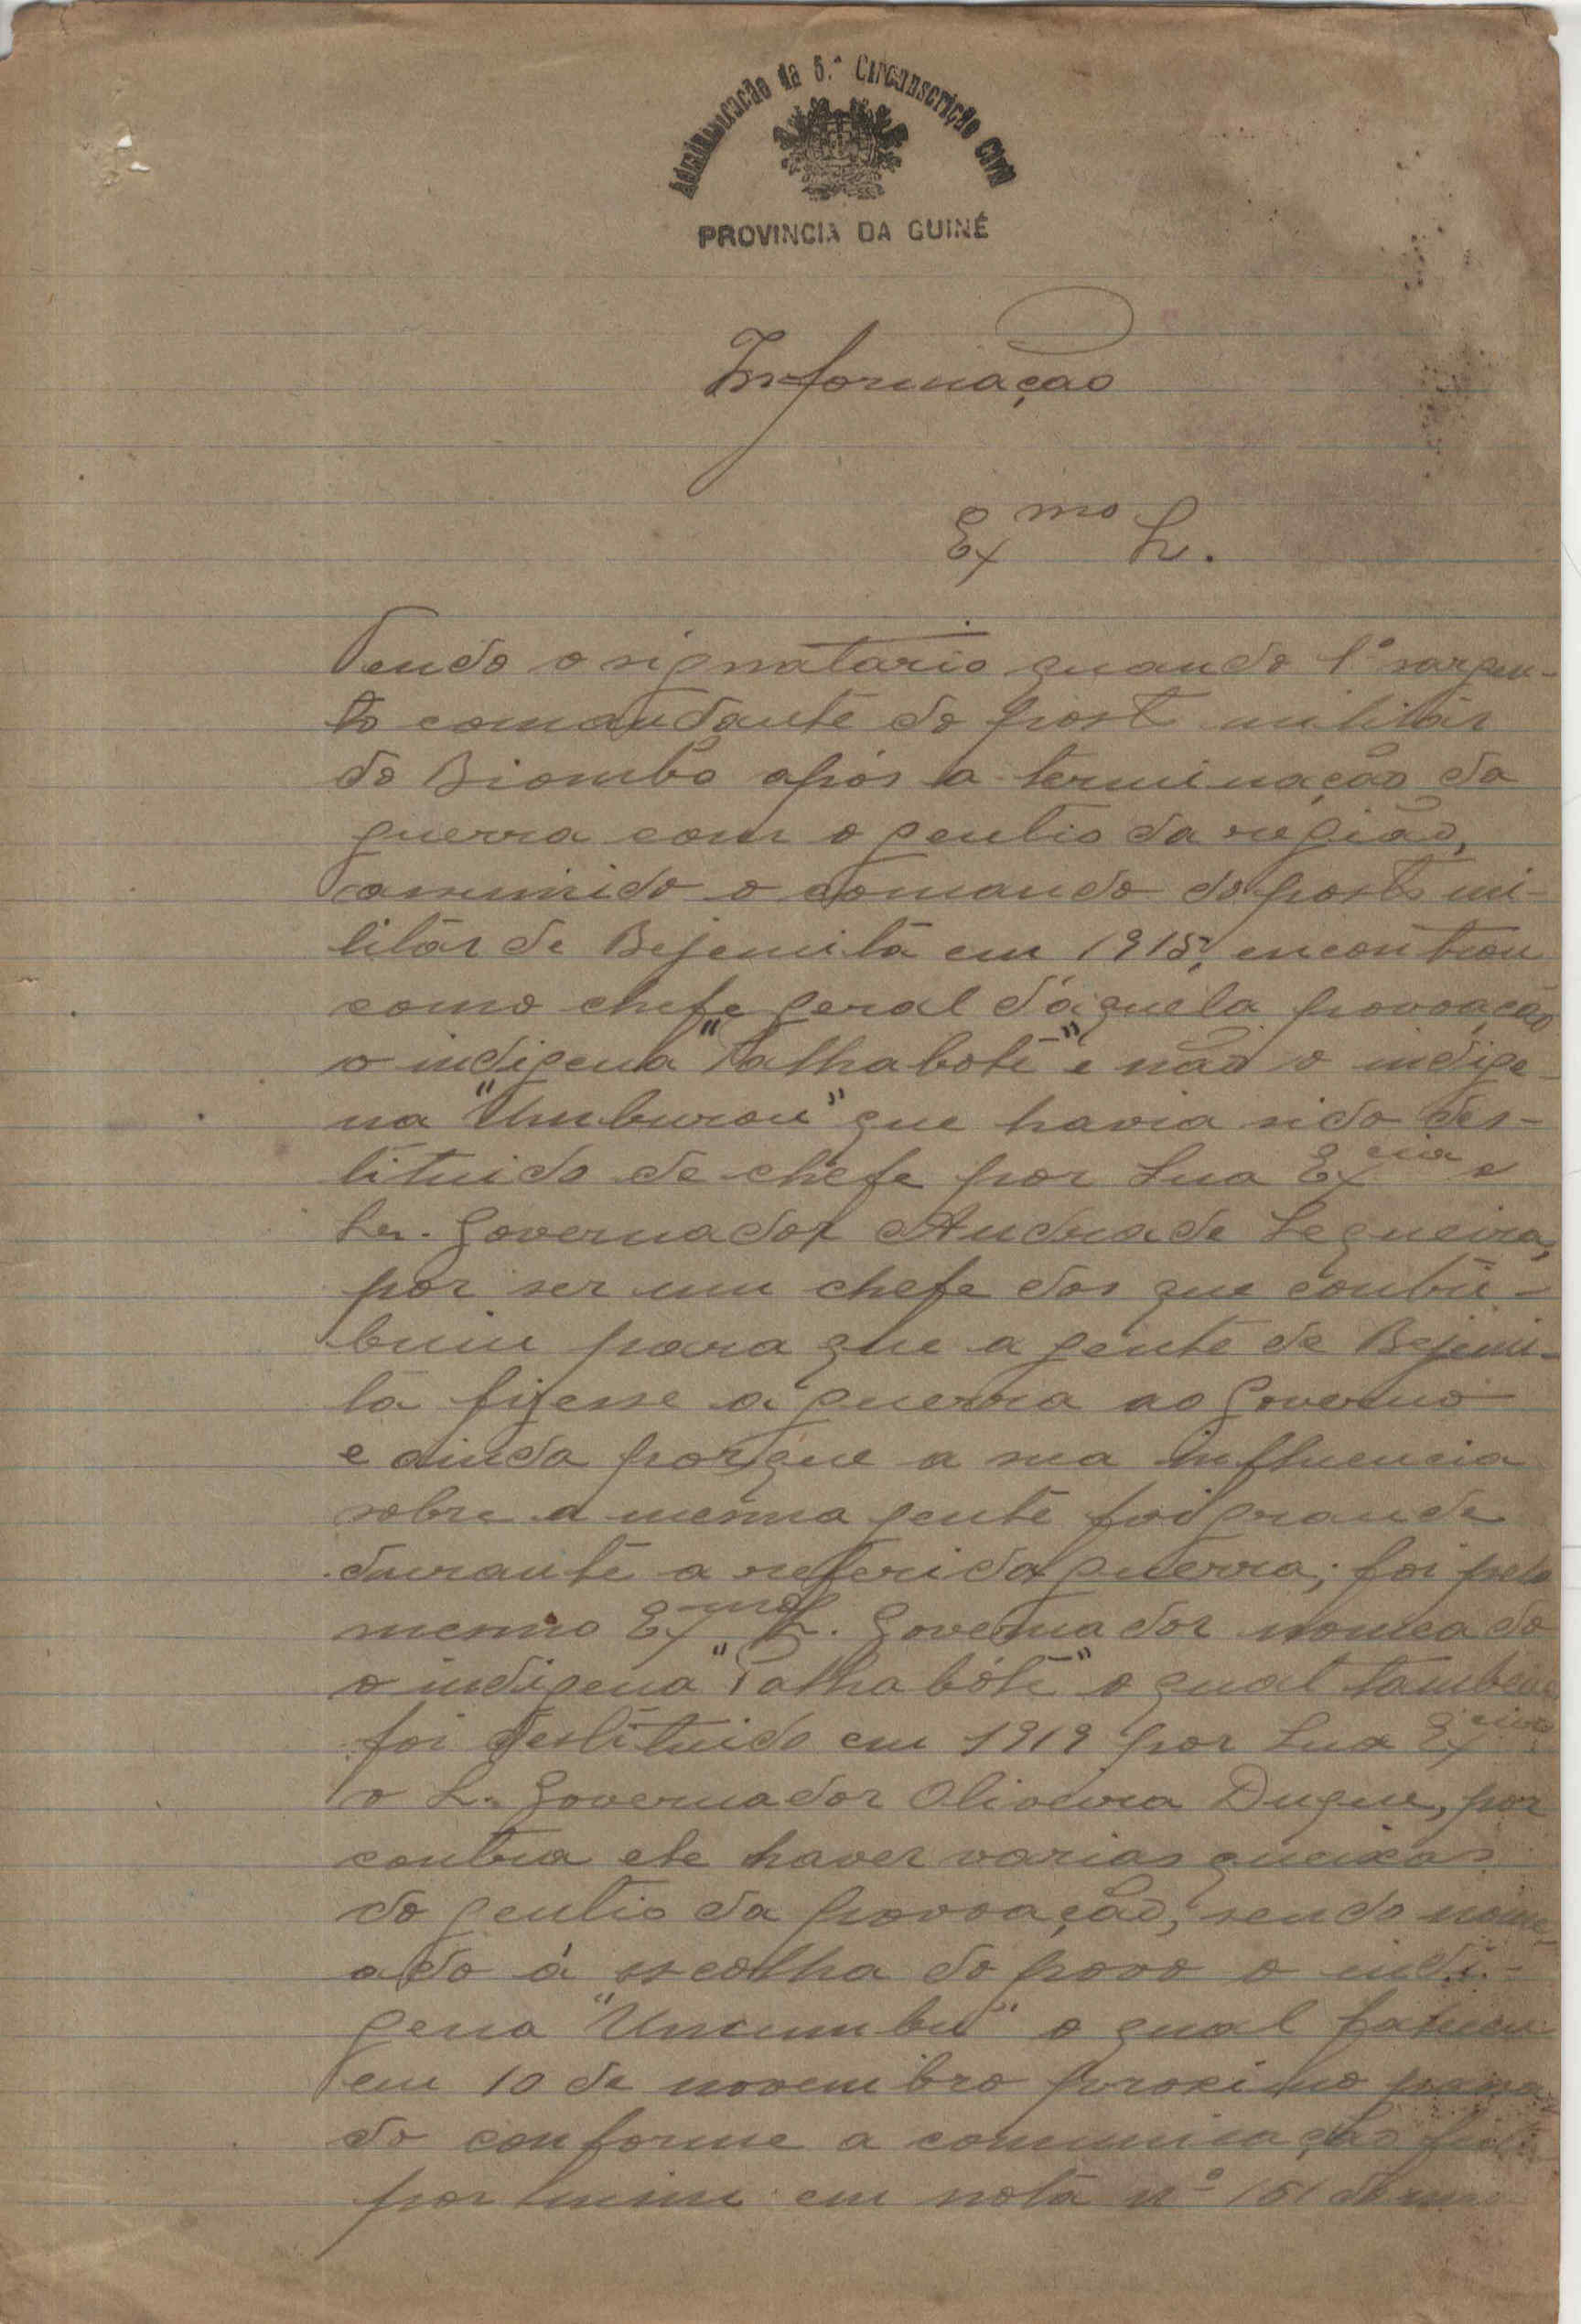 Administração da 5.ª Circunscrição Civil
PROVINCIA DA GUINÉ
Informação
Exmo Sr.
Tendo o signatario quando 1º sargen-
to comandante do posto militár
do Biombo após a terminação da
guerra com o gentio da região,
assumido o comando do posto mi-
litár de Bejemitá em 1915, encontrou
como chefe geral d'aquela povoação
o indigena "Palhabote" e não o indige-
na "Umburou" que havia sido des-
tituido de chefe por Sua Excia o
Sr. Governador Andrade Sequeira,
por ser um chefe dos que contri-
buiu para que a gente de Bejemi-
tá fizesse a guerra ao Governo
e ainda porque a sua influencia
sobre a mesma gente foi grande
durante a referida guerra; foi pelo
mesmo Exmo Sr. Governador nomeado
o indigena "Palhabóte" o qual tambem
foi destituido em 1919 por Sua Excia
o Sr. Governador Oliveira Duque, por
contra ele haver varias queixas
do gentio da povoação, sendo nome-
ado á escolha do povo o indi-
gena "Uncumbu" o qual faleceu
em 10 de novembro proximo passa-
do conforme a comunicação feita
por mim em nota nº 151